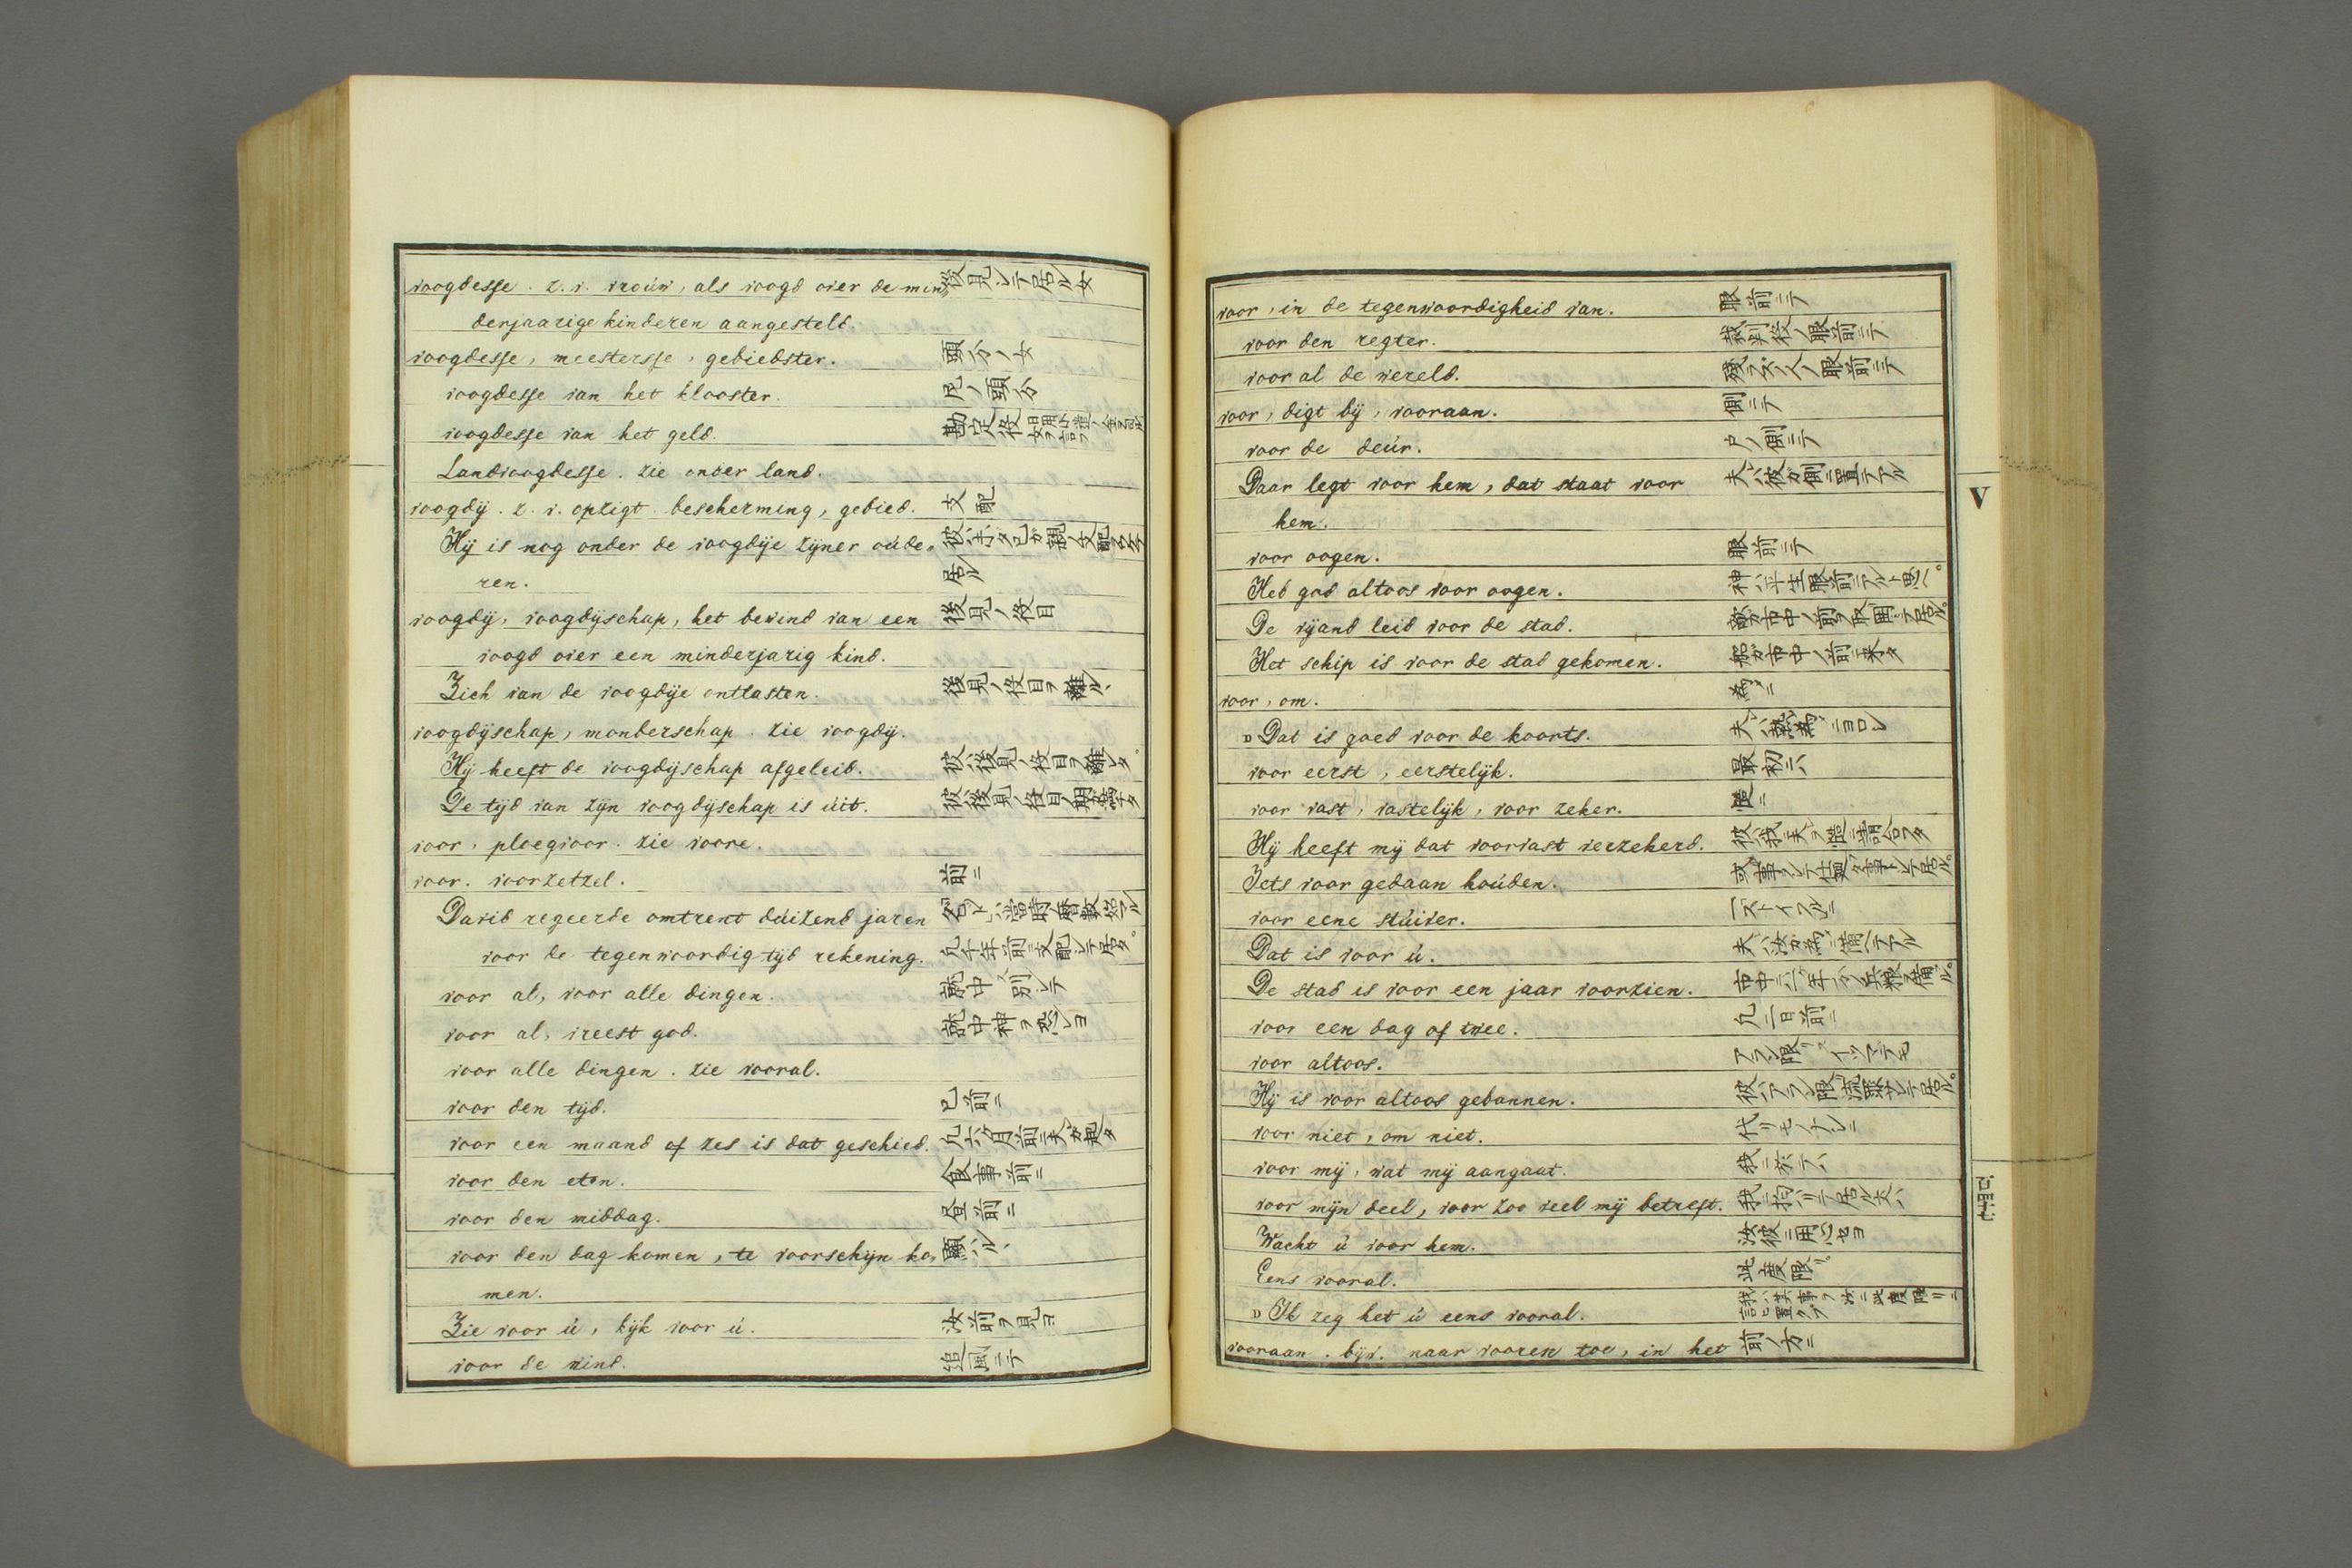 voogdesse. z. v. vrouw, als voogd over de min„ 後見シテ居ル女
derjaarige kinderen aangesteld.
voogdesse, meestersse, gebiedster. 頭分ノ女
voogdesse van het klooster. 尼ノ頭分
voogdesse van het geld. 勘定役
Landvoogdesse. zie onder land.
voogdij. z. v. opzigt bescherming, gebied. 支配
Hij is nog onder de voogdije zijner oúde„
ren. 居ル
voogdij, voogdijschap, het bewind van een 後見ノ役目
voogd over een minderjarig kind.
Zich van de voogdije ontlasten. 後見ノ役目ヲ離ルヽ
voogdijschap, monderschap. zie voogdij.
Hij heeft de voogdijschap afgeleid. 彼ハ後見ノ役目ヲ離レタ。
De tijd van zijn voogdijschap is úit.
voor, ploegvoor. zie voore.
voor. voorzetzel. 前ニ
David regeerde omtrent dúizend jaren
voor de tegenwoordig tijd rekening. 凡千年前ニ支配シテ居タ。
voor al, voor alle dingen. 就中 別シテ
voor al, vreest god. 就中神ヲ恐レヨ
voor alle dingen. zie vooral.
voor den tijd. 已前ニ
voor een maand of zes is dat geschied. 凡六ケ月前ニ夫カ起タ
voor den eten. 食事前ニ
voor den middag. 昼前ニ
voor den dag komen, te voorschijn ko„ 顕ハルヽ
men.
Zie voor ú, kijk voor ú. 汝前ヲ見ヨ
voor de wind. 追風ニテ
voor, in de tegenwoordigheid van. 眼前ニテ
voor den regter. 裁判役ノ眼前ニテ
voor al de wereld.
voor, digt bij, vooraan. 側ニテ
voor de deúr. 戸ノ側ニテ
Daar legt voor hem, dat staat voor 夫ハ彼カ側ニ置テアル
hem.
voor oogen. 眼前ニテ
Heb god altoos voor oogen. 神ハ平生眼前ニアルト思ヘ。
De vijand leid voor de stad. 敵カ市中ノ前ヲ取囲テ居ル。
Het schip is voor de stad gekomen. 船カ市中ノ前ニ来タ
voor, om. 為ニ
Dat is goed voor de koorts. 夫ハ熱ノ為ニヨロシ
voor eerst, eerstelijk. 最初ニハ
voor vast, vastelijk, voor zeker. 慥ニ
Hij heeft mij dat voorvast verzekerd. 彼ハ我ニ夫ヲ慥ニ請合フタ
Iets voor gedaan hoúden.
voor eene stúiver.
Dat is voor ú. 夫ハ汝カ為ニ備ヘテアル
De stad is voor een jaar voorzien.
voor een dag of twee. 凡二日前ニ
voor altoos. アラン限リ イツマテモ
Hij is voor altoos gebannen. 彼ハアラン限リ流罪サレテ居ル。
voor niet, om niet. 代リモノナシニ
voor mij, wat mij aangaat. 我ニ於テハ
voor mijn deel, voor zoo veel mij betreft. 我ニ拘ハリテ居ル丈ハ
Wacht ú voor hem. 汝彼ニ用心セヨ
Eens vooral. 此度限リ
Ik zeg het ú eens vooral. 我ハ其事ヲ汝ニ此度限リニ言ヒ置クゾ
vooraan. bijw. naar vooren toe, in het 前ノ方ニ
V